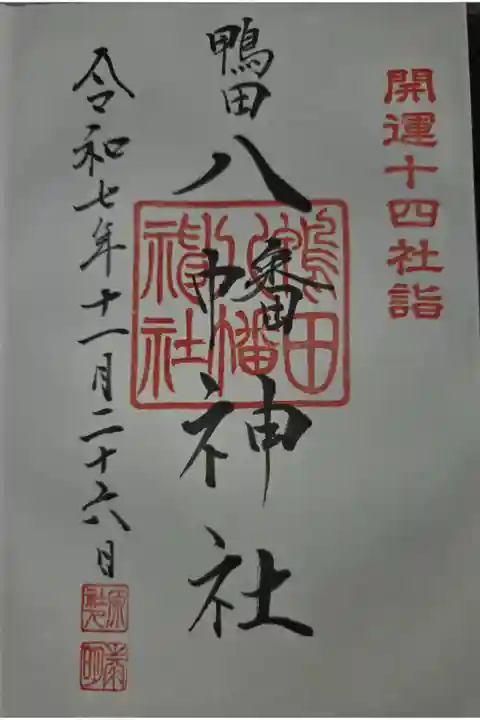 開運十四社詣
鴨田八幡神社
鴨田八幡神社
令和七年十一月二十六日